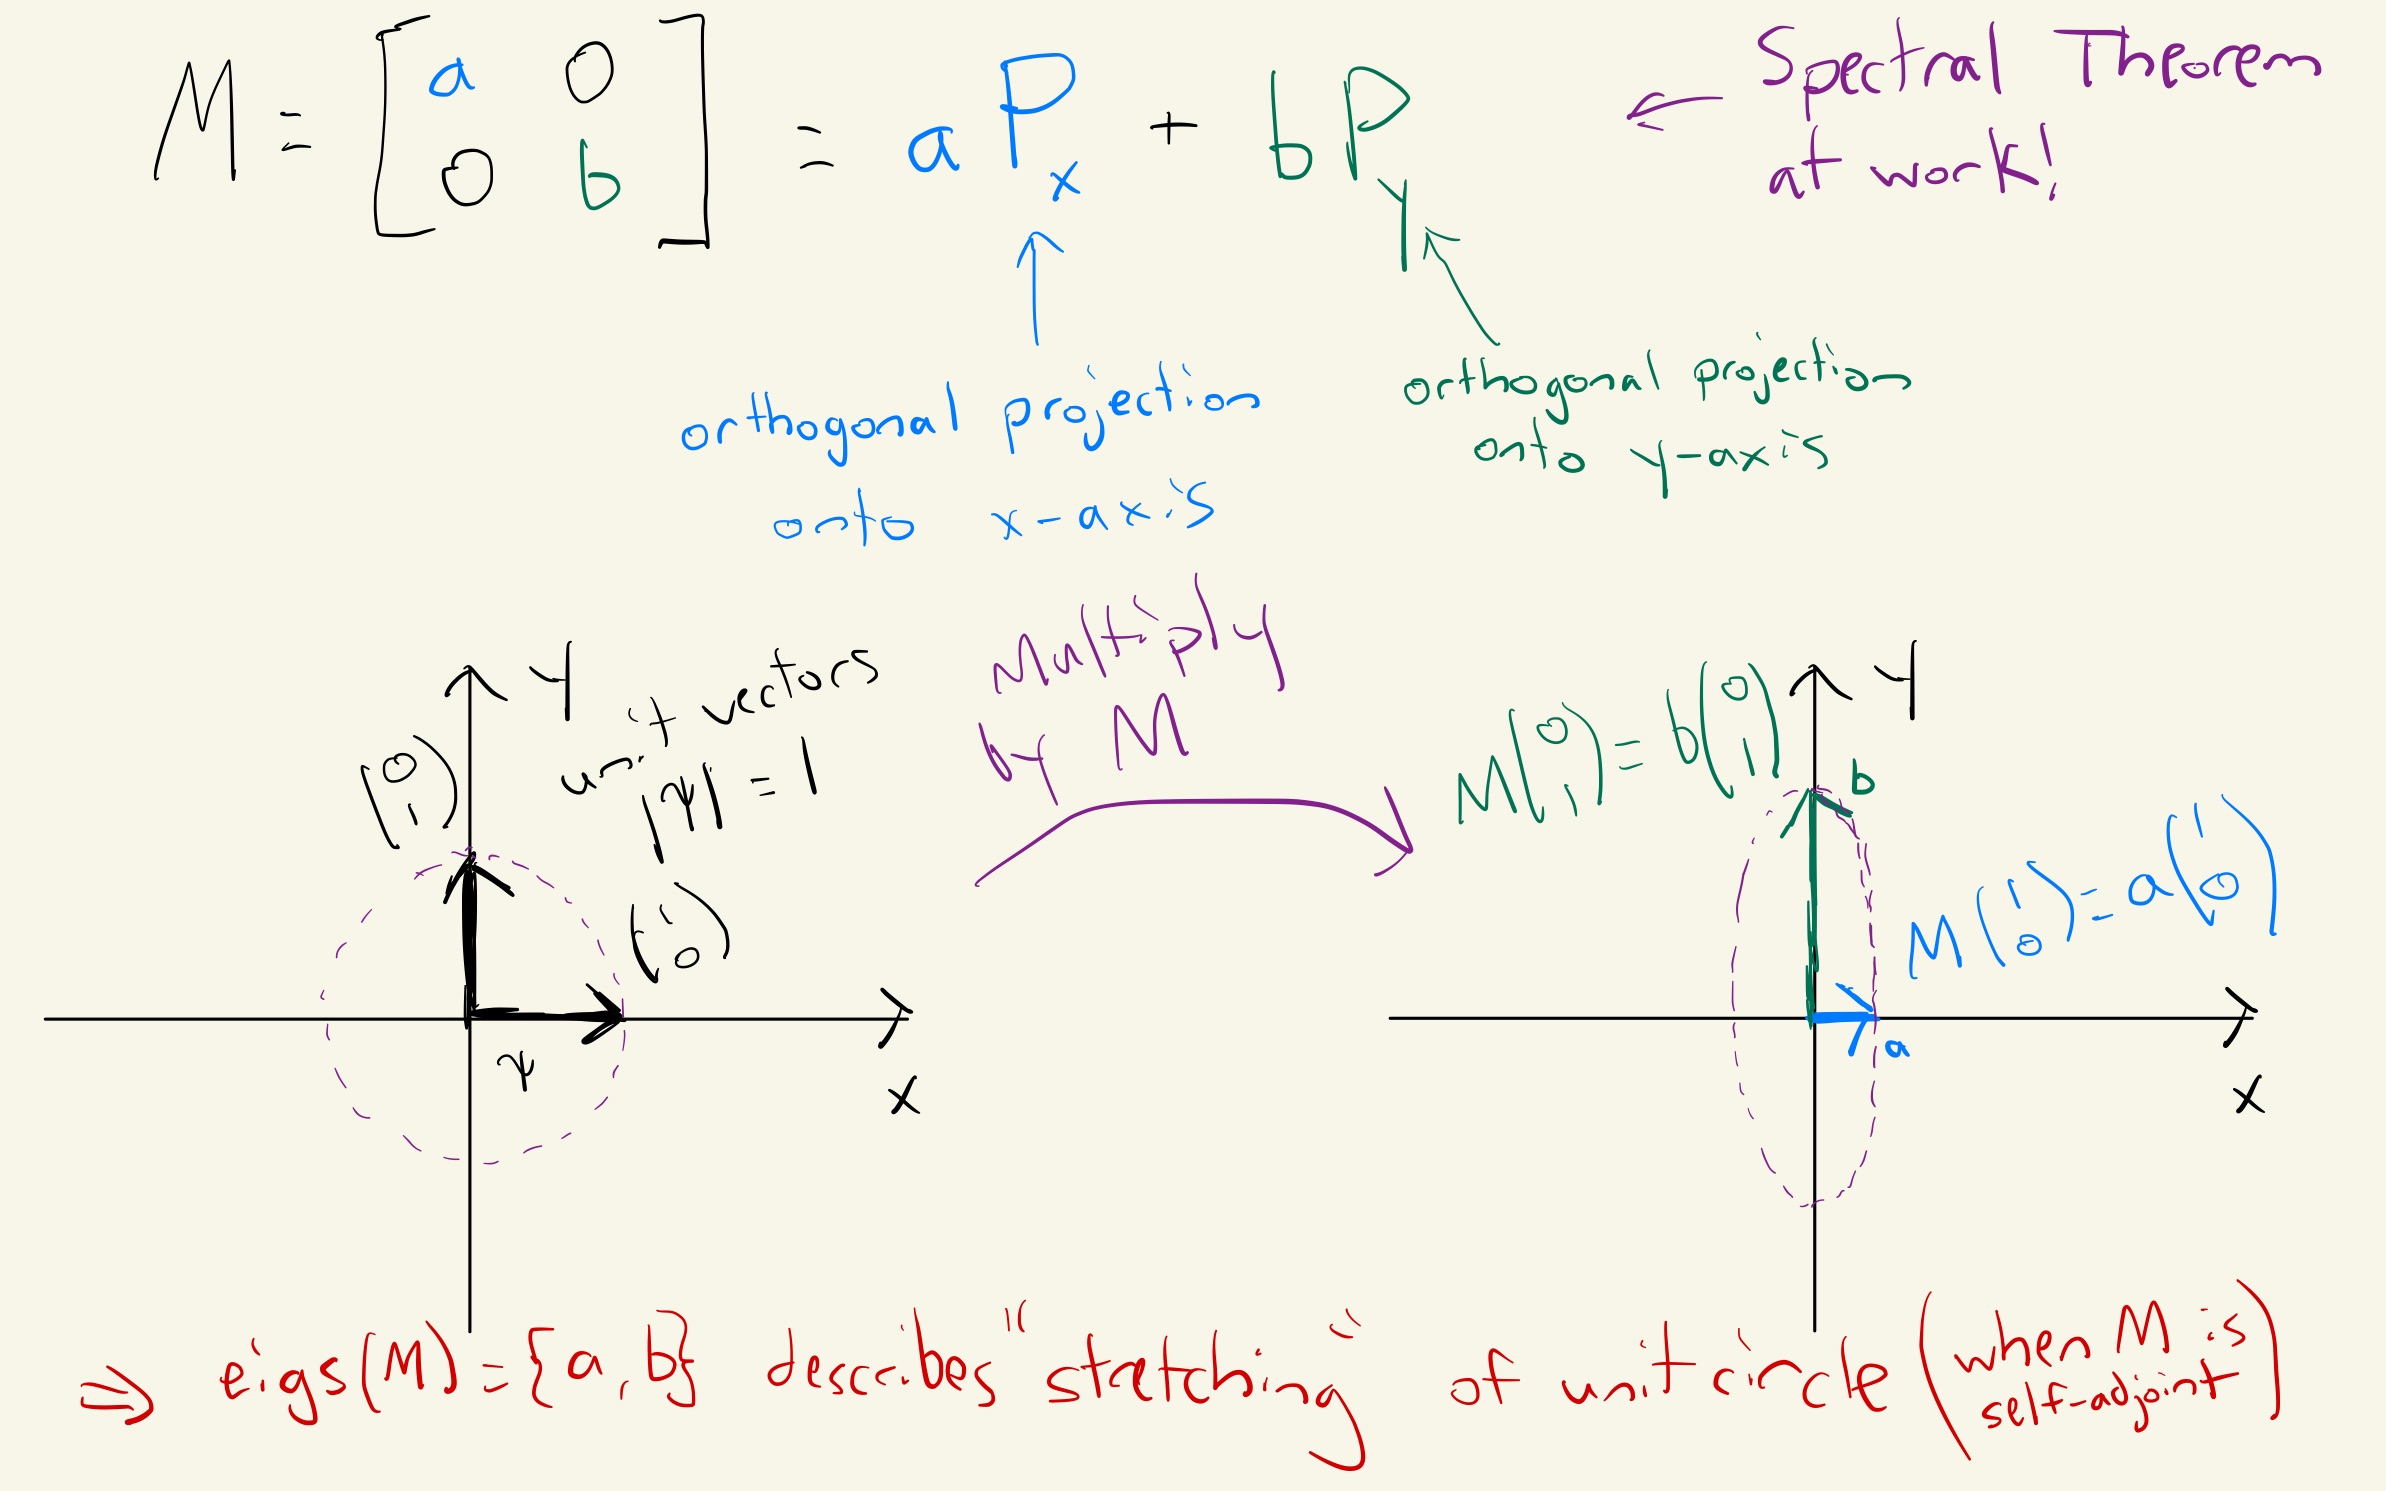 M = [ a 0
0 b ] = a Pₓ + b P_y
← Spectral Theorem
at work!
orthogonal projection
onto x-axis
orthogonal projection
onto y-axis
y
unit vectors
|ψ| = 1
(0
1)
(1
0)
ψ
x
Multiply
by M
y
M(0
1) = b(0
1)
b
M(1
0) = a(1
0)
a
x
⇒ eigs(M) = {a, b} describes "stretching" of unit circle (when M is
self-adjoint)